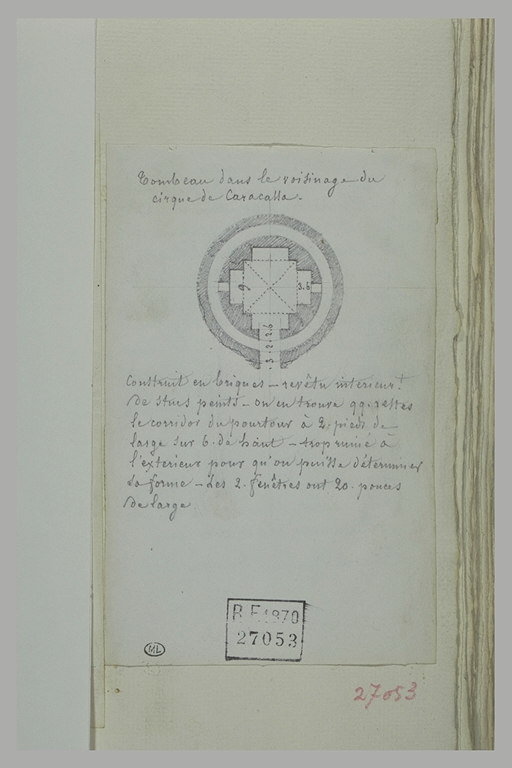 Tombeau dans le voisinage du
cirque de Caracalla.
9
3.6
3.2.2.6
Construit en briques - revêtu intérieur.t
de stucs peints - on en trouve qq. restes
le corridor du pourtour à 2. pieds de
large sur 6. de haut - trop ruiné à
l'extérieur pour qu'on puisse déterminer
sa forme - Les 2. fenêtres ont 20. pouces
de large.
R.F. 1870
27053
ML
27053